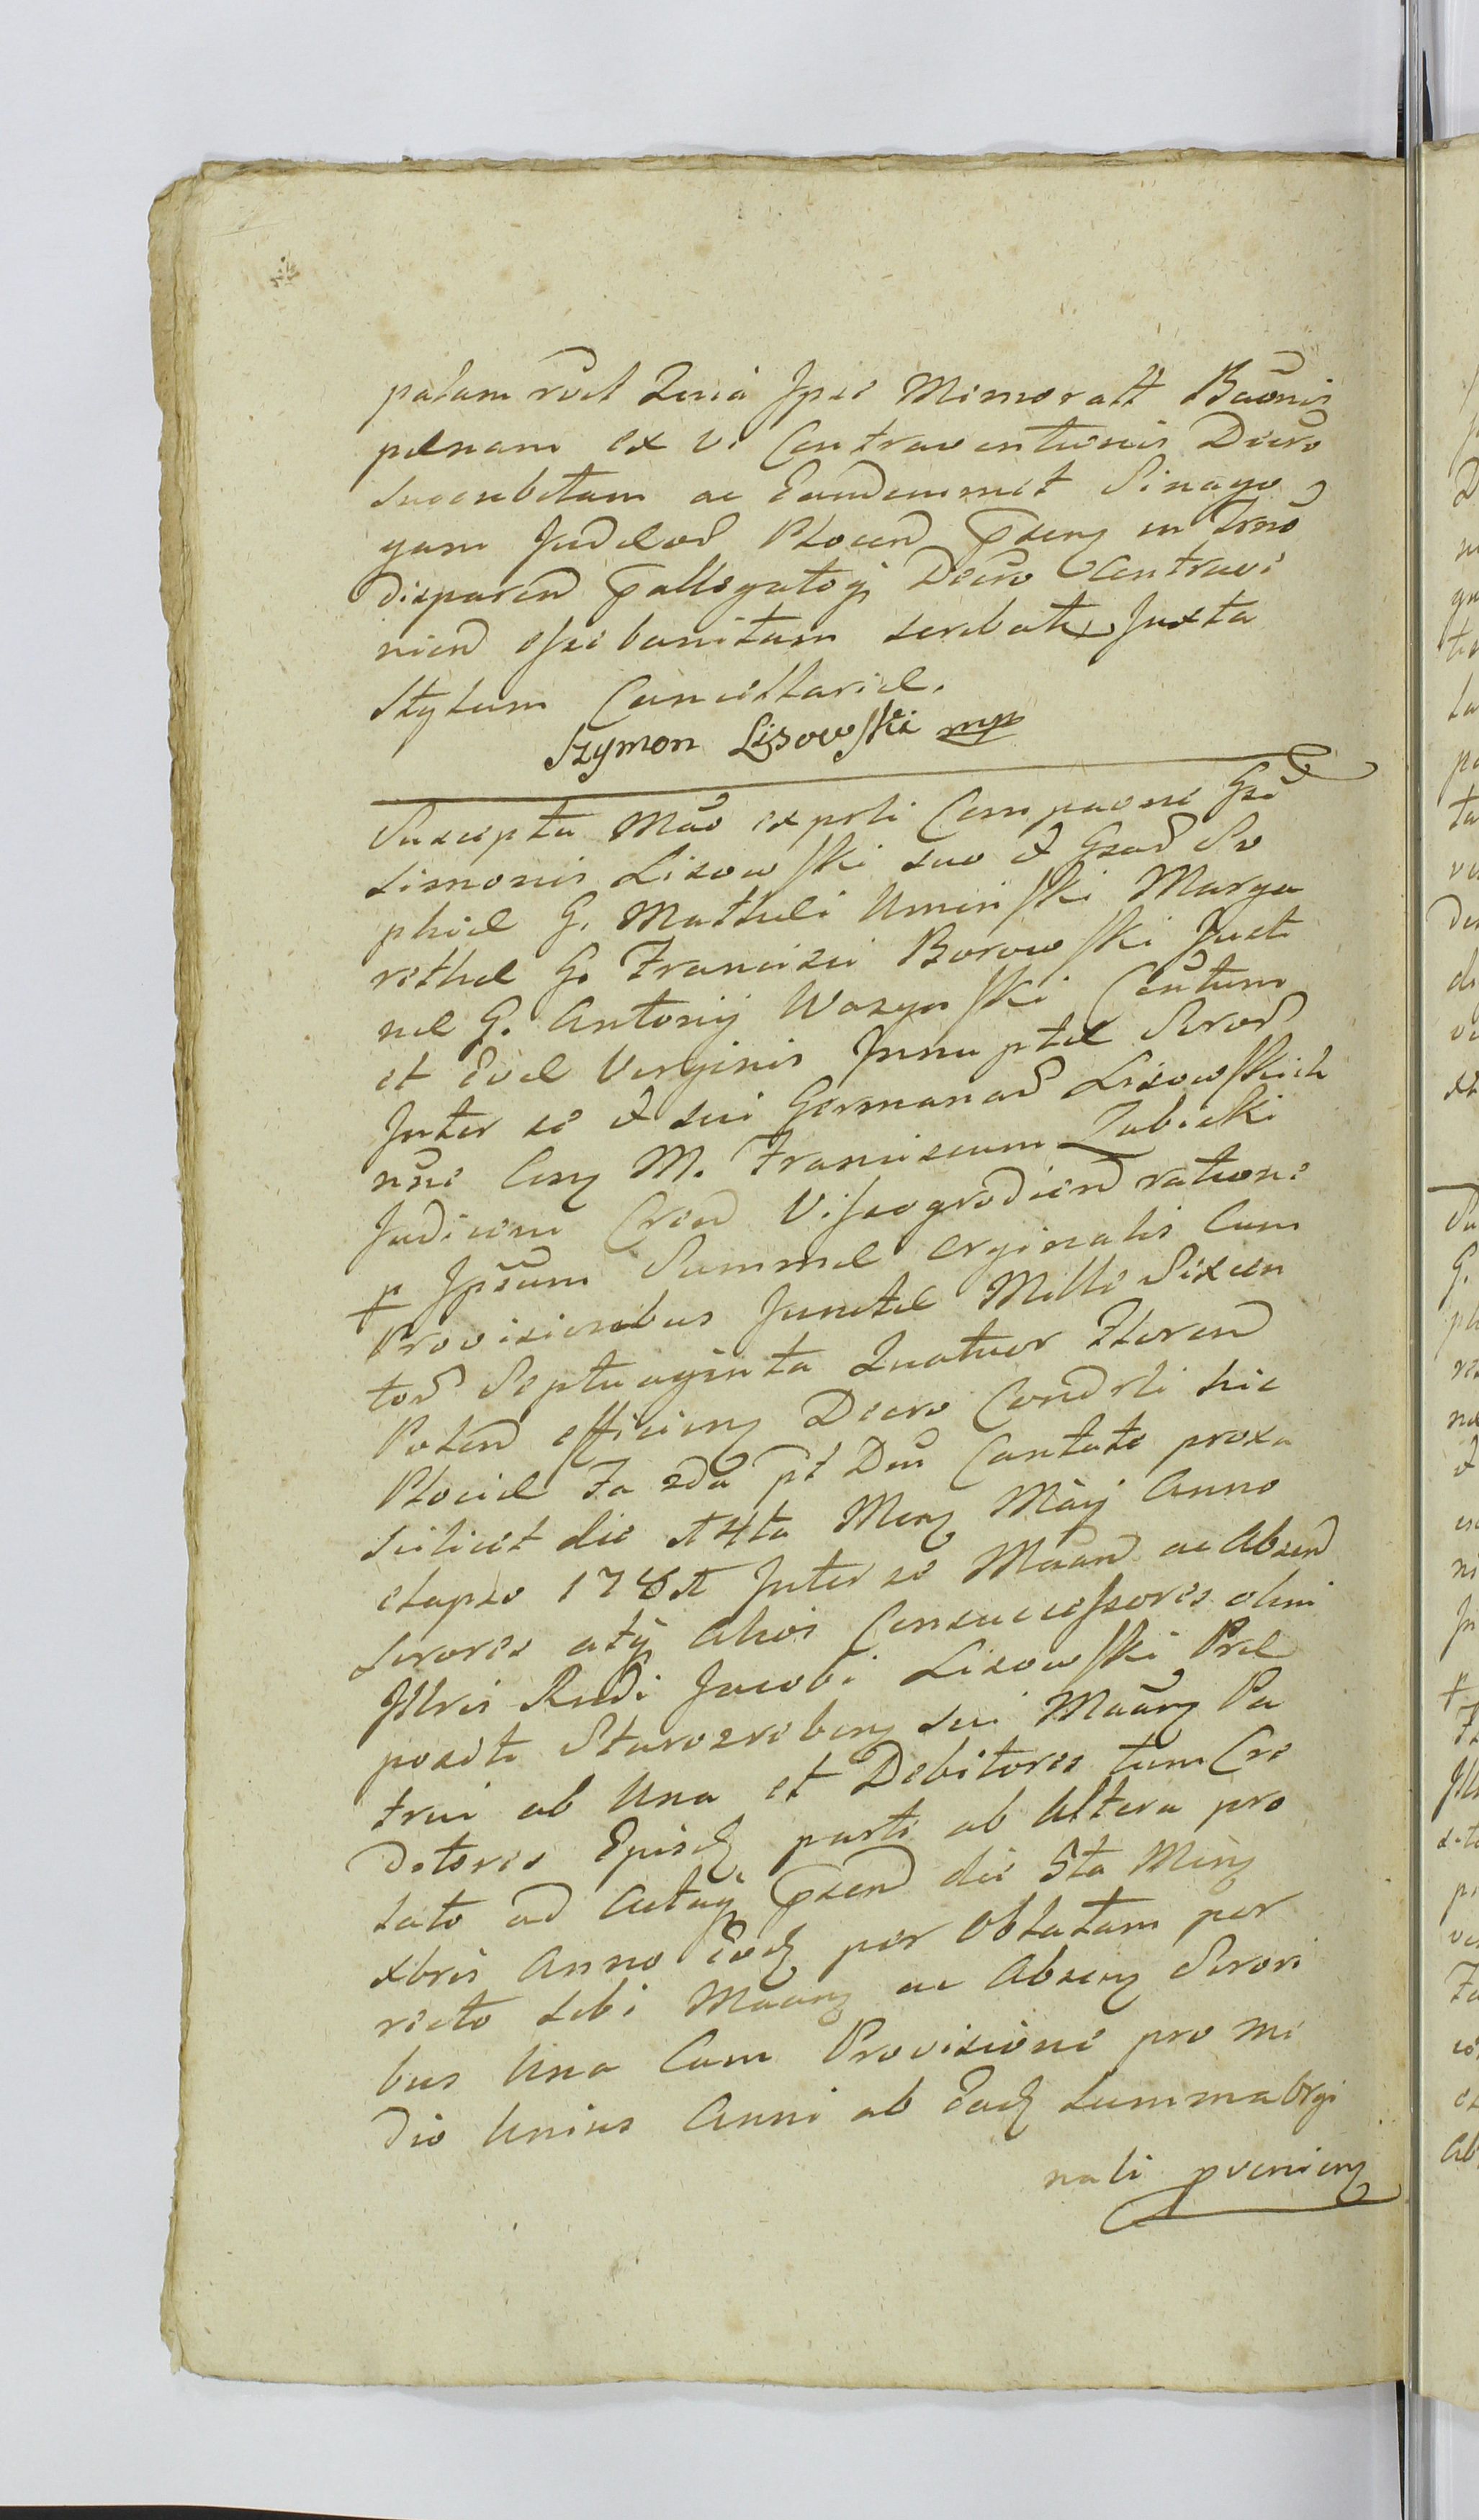 palam rvit Quia Ipse Memoratt Baonis
penam ex vi Contraventionis Decro
succubitam ac Eandemmet Sinago
gam Judeor Plocen psens in Trno
disparen pallegatoq Decro Contrave
nien esse banitam scribatur Juxta
Stylum Cancellariae.
Szymon Lisowski mp
Suscepta Mao ex prti Comparne Gsi
Simonis Lisowski suo & Gsar So
phiae G. Matthei Uminski Marga
rethae G. Francisci Borowski Justi
nae G. Antonij Wasynski Coniutum
et Evae Virginis Innuptae Soror
Inter se & sui Germanar Lisowskich
nne Cnz M. Franciscum Zabicki
Judicem Cren Vissogrodien ratione
p Ipsum Summae Orginalis Cum
Provisionibus Junctae Mille Sexcen
tor Septuaginta Quatuor Floren
Polen efficienz Decro Condrli hic
Plociae Fa 2da pt Dni Cantate proxa
scilicet die 14ta Menz Maij Anno
elapso 1781 Inter se Maan ac Absen
sorores atq alios Consuccessores olim
Illris Rndi Jacobi Lisowski Prae
positi Starozrebenz sui Maanz Pa
trui ab Una et Debitores tum Cre
ditores Episd parti ab Altera pro
lato ad Actaq psen die 5ta Menz
xbris Anno Eod per Oblatam por
recto sibi Maanz ac Absenz Sorori
bus Una Cum Provisione pro me
dio Unius Anni ab Ead Summa Orgi
nali pvenienz